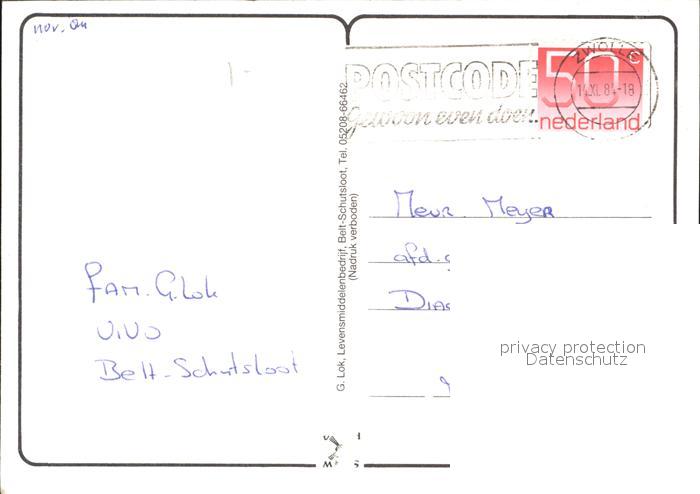 nov. 84
ZWOLLE
POSTCODE
14.XI.84-18
50
Gewoon even doen.
nederland
G. Lok, Levensmiddelenbedrijf, Belt-Schutsloot, Tel. 05208-66462
(Nadruk verboden)
Mevr. Meyer
afd.
Fam. G. Lok
VIVO
Belt-Schutsloot
privacy protection
Datenschutz